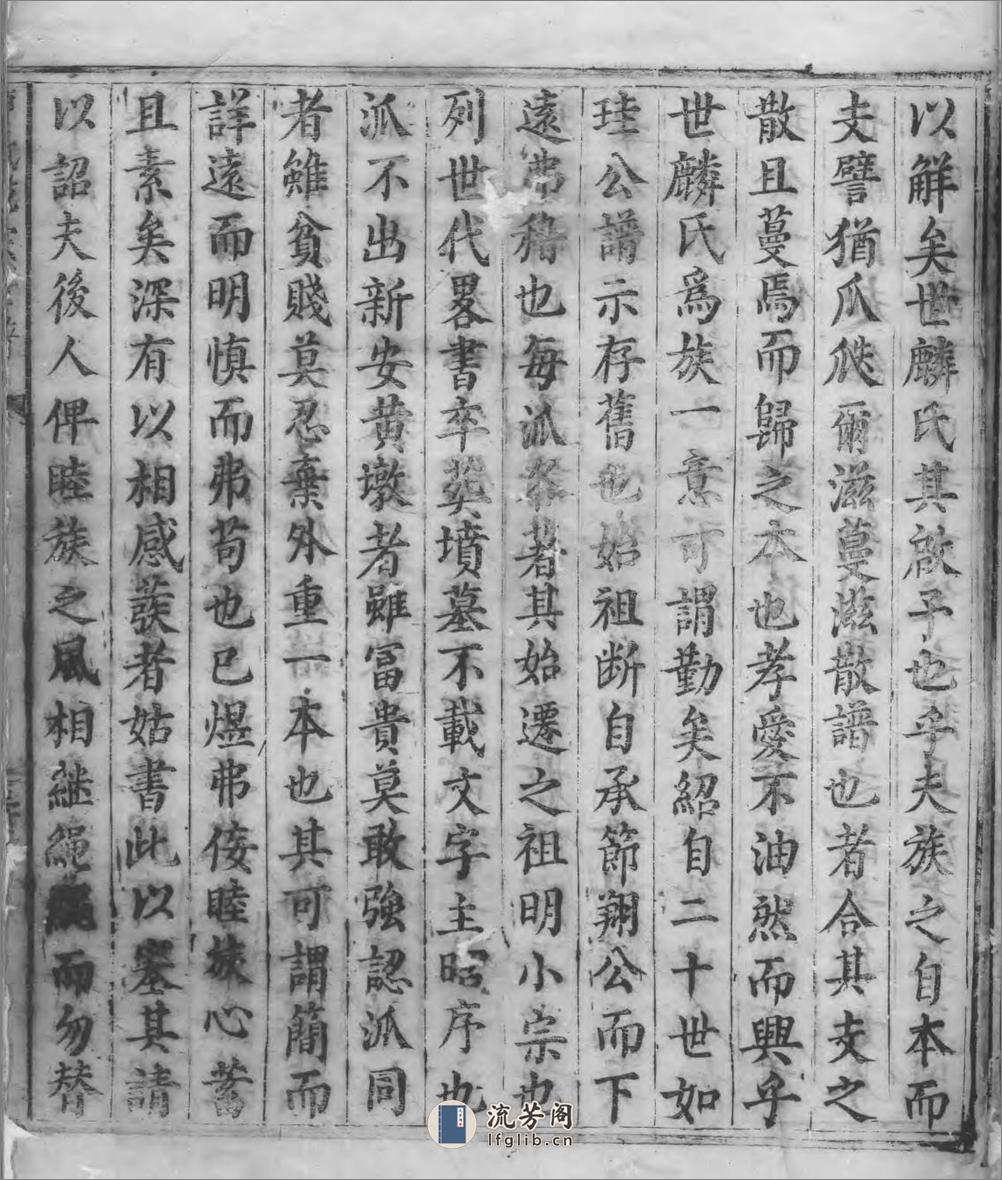 以觧矣世麟氏其啟予也乎夫族之自本而
支譬猶瓜瓞爾滋蔓滋散譜也者合其支之
散且蔓焉而歸之本也孝愛不油然而興乎
世麟氏爲族一意可謂勤矣紹自二十世如
珪公譜示存舊也始祖断自承節翔公而下
遠弗稽也每派畧著其始遷之祖明小宗也
列世代畧書卒葬墳墓不載文字主昭序也
派不出新安黄墩者雖冨貴莫敢強認派同
者雖貧賤莫忍棄外重一本也其可謂簡而
詳遠而明慎而弗苟也已煜弗佞睦族心蓄
且素矣深有以相感䇿者姑書此以塞其請
以詔夫後人俾睦族之風相継繩繩而勿替
流芳阁
lfglib.cn